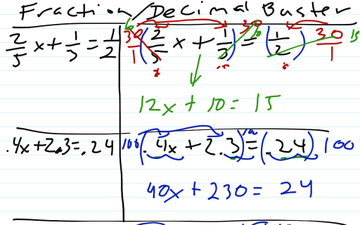 Fraction/Decimal Buster
2/5 x + 1/3 = 1/2
30/1 (2/5 x + 1/3) = (1/2) 30/1
12x + 10 = 15
.4x + 2.3 = .24
100 (.4x + 2.3) = (.24) 100
40x + 230 = 24